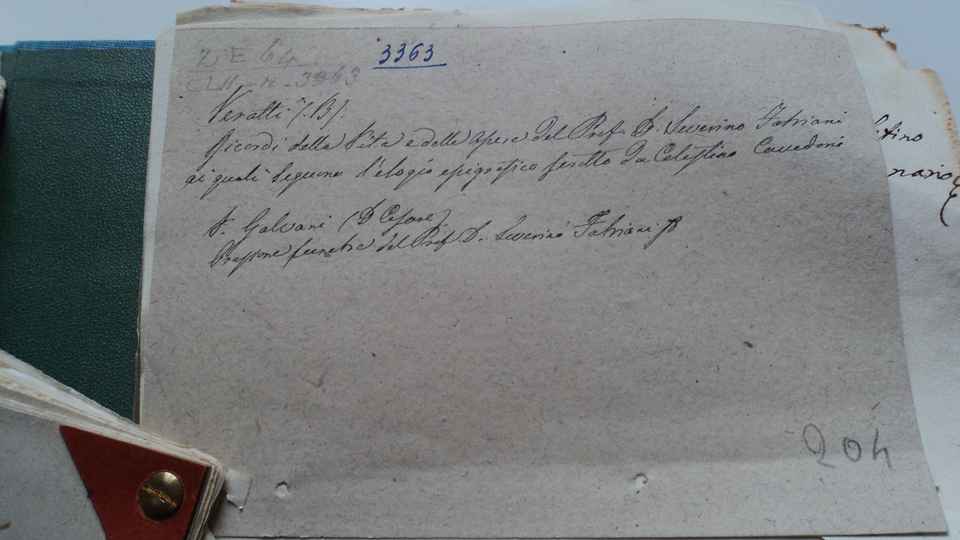 Z E 64
3363
CLM. n. 3363
Veratti (B)
Ricordi della Vita e delle opere del Prof. D. Severino Fabriani
ai quali seguono l'elogio epigrafico scritto da Celestino Cavedoni
V. Galvani (D. Cesare)
Orazione funebre del Prof. D. Severino Fabriani
204
tino
nario